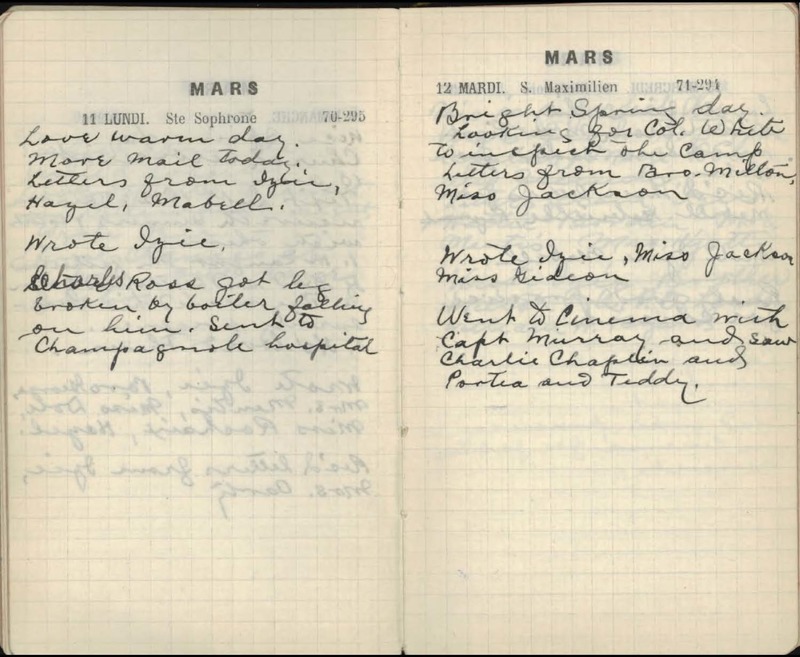 MARS
11 LUNDI. Ste Sophrone 70-295
Love warm day.
More mail today.
Letters from Izie,
Hazel, Mabell.
Wrote Izie.
Charles Ross got leg
broken by boiler falling
on him. Sent to
Champagnole hospital
MARS
12 MARDI. S. Maximilien 71-294
Bright Spring day.
Looking for Col. White
to inspect the Camp
Letters from Bro. Milton,
Miss Jackson
Wrote Izie, Miss Jackson
Miss Gideon
Went to Cinema with
Capt Murray and saw
Charlie Chaplin and
Portea and Teddy.